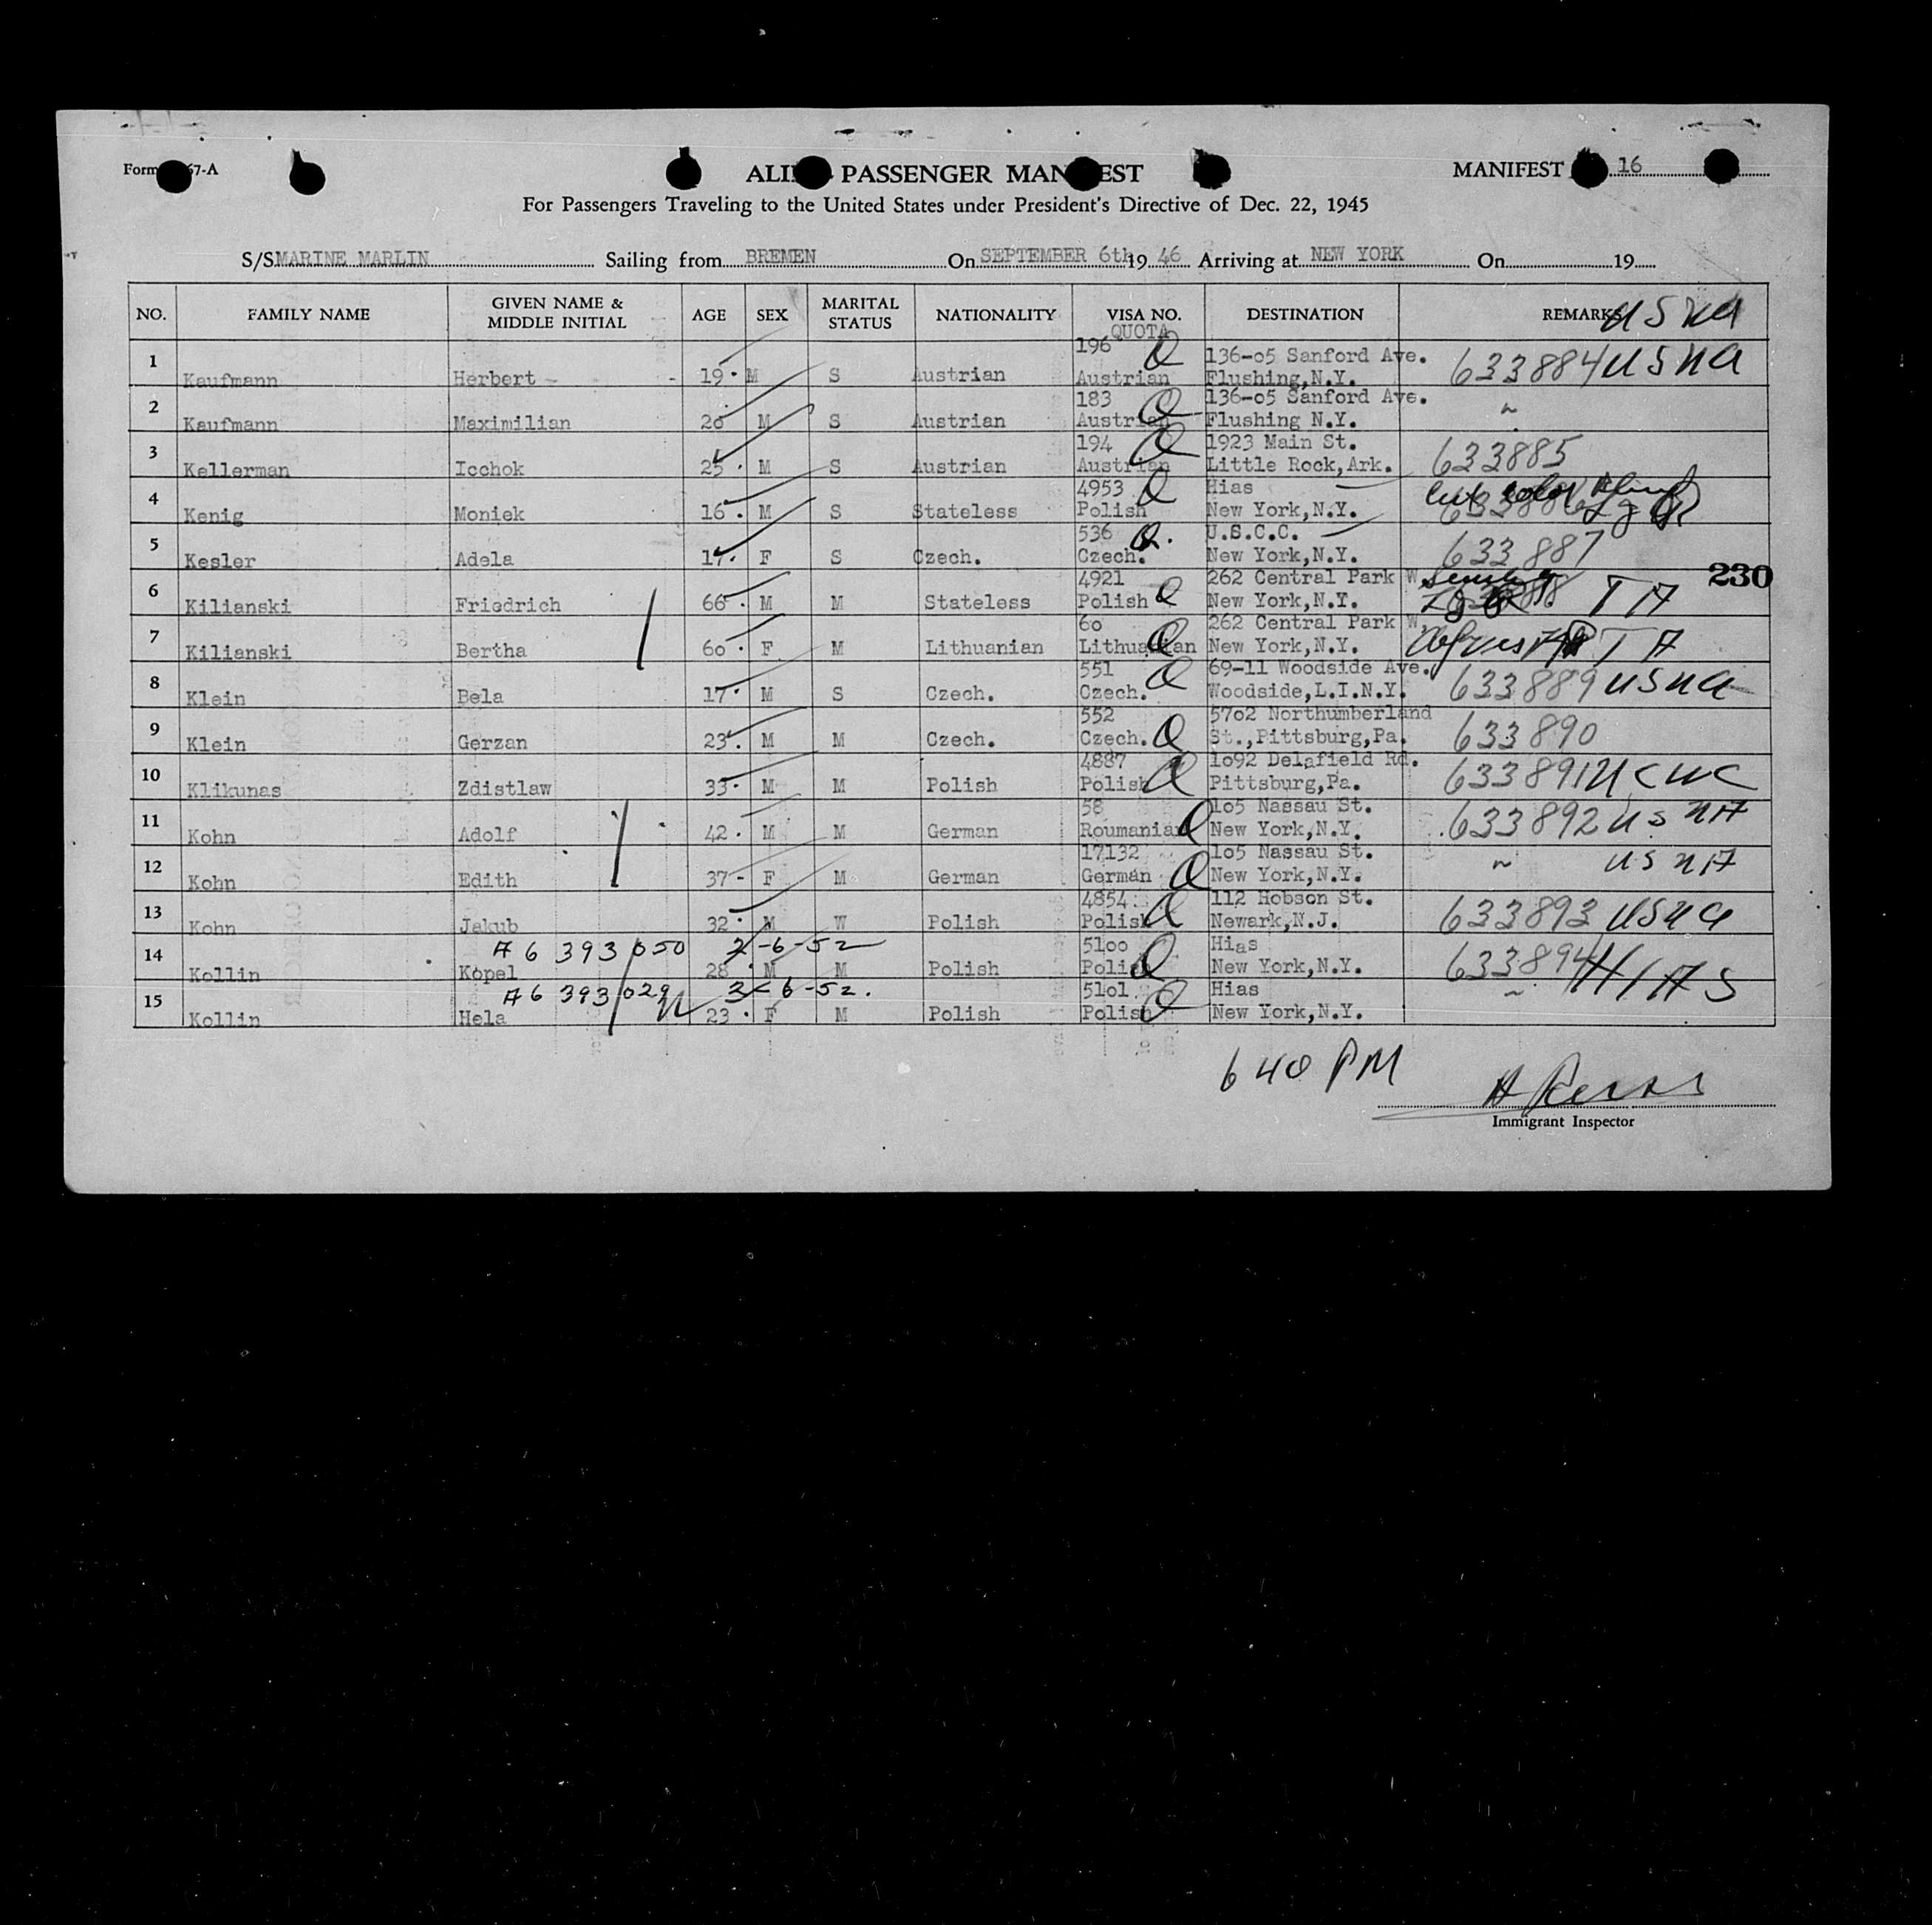 Form 67-A
ALI PASSENGER MAN EST
MANIFEST 16
For Passengers Traveling to the United States under President's Directive of Dec. 22, 1945
S/S MARINE MARLIN Sailing from BREMEN On SEPTEMBER 6th 19 46 Arriving at NEW YORK On 19
NO. FAMILY NAME GIVEN NAME & MIDDLE INITIAL AGE SEX MARITAL STATUS NATIONALITY VISA NO. QUOTA DESTINATION REMARKS USNA
196 Q 136-05 Sanford Ave.
1 Kaufmann Herbert - - 19 M S Austrian Austrian Flushing,N.Y. 633884 USNA
183 Q 136-05 Sanford Ave.
2 Kaufmann Maximilian 20 M S Austrian Austrian Flushing N.Y. ~
194 Q 1923 Main St.
3 Kellerman Icchok 25 M S Austrian Austrian Little Rock,Ark. 633885
4953 Q Hias
4 Kenig Moniek 16 M S Stateless Polish New York,N.Y. 633886
536 Q. U.S.C.C.
5 Kesler Adela 17 F S Czech. Czech. New York,N.Y. 633887
230
4921 262 Central Park W.
6 Kilianski Friedrich 66 M M Stateless Polish Q New York,N.Y. TA
60 262 Central Park W.
7 Kilianski Bertha 60 F M Lithuanian Lithuanian Q New York,N.Y. TA
551 Q 69-11 Woodside Ave.
8 Klein Bela 17 M S Czech. Czech. Woodside,L.I.N.Y. 633889 USNA
552 5702 Northumberland
9 Klein Gerzan 23 M M Czech. Czech. Q St.,Pittsburg,Pa. 633890
4887 1092 Delafield Rd.
10 Klikunas Zdistlaw 33 M M Polish Polish Q Pittsburg,Pa. 633891 NCWC
58 105 Nassau St.
11 Kohn Adolf 42 M M German Roumanian Q New York,N.Y. 633892 USNA
17132 105 Nassau St.
12 Kohn Edith 37 F M German German Q New York,N.Y. ~ USNA
4854 112 Hobson St.
13 Kohn Jakub 32 M W Polish Polish Q Newark,N.J. 633893 USNA
A6 393 050 2-6-52 5100 Hias
14 Kollin Kopel 28 M M Polish Polish Q New York,N.Y. 633894 HIAS
A6 393 029 2-6-52. 5101 Hias
15 Kollin Hela 23 F M Polish Polish Q New York,N.Y. ~
640 PM
Immigrant Inspector